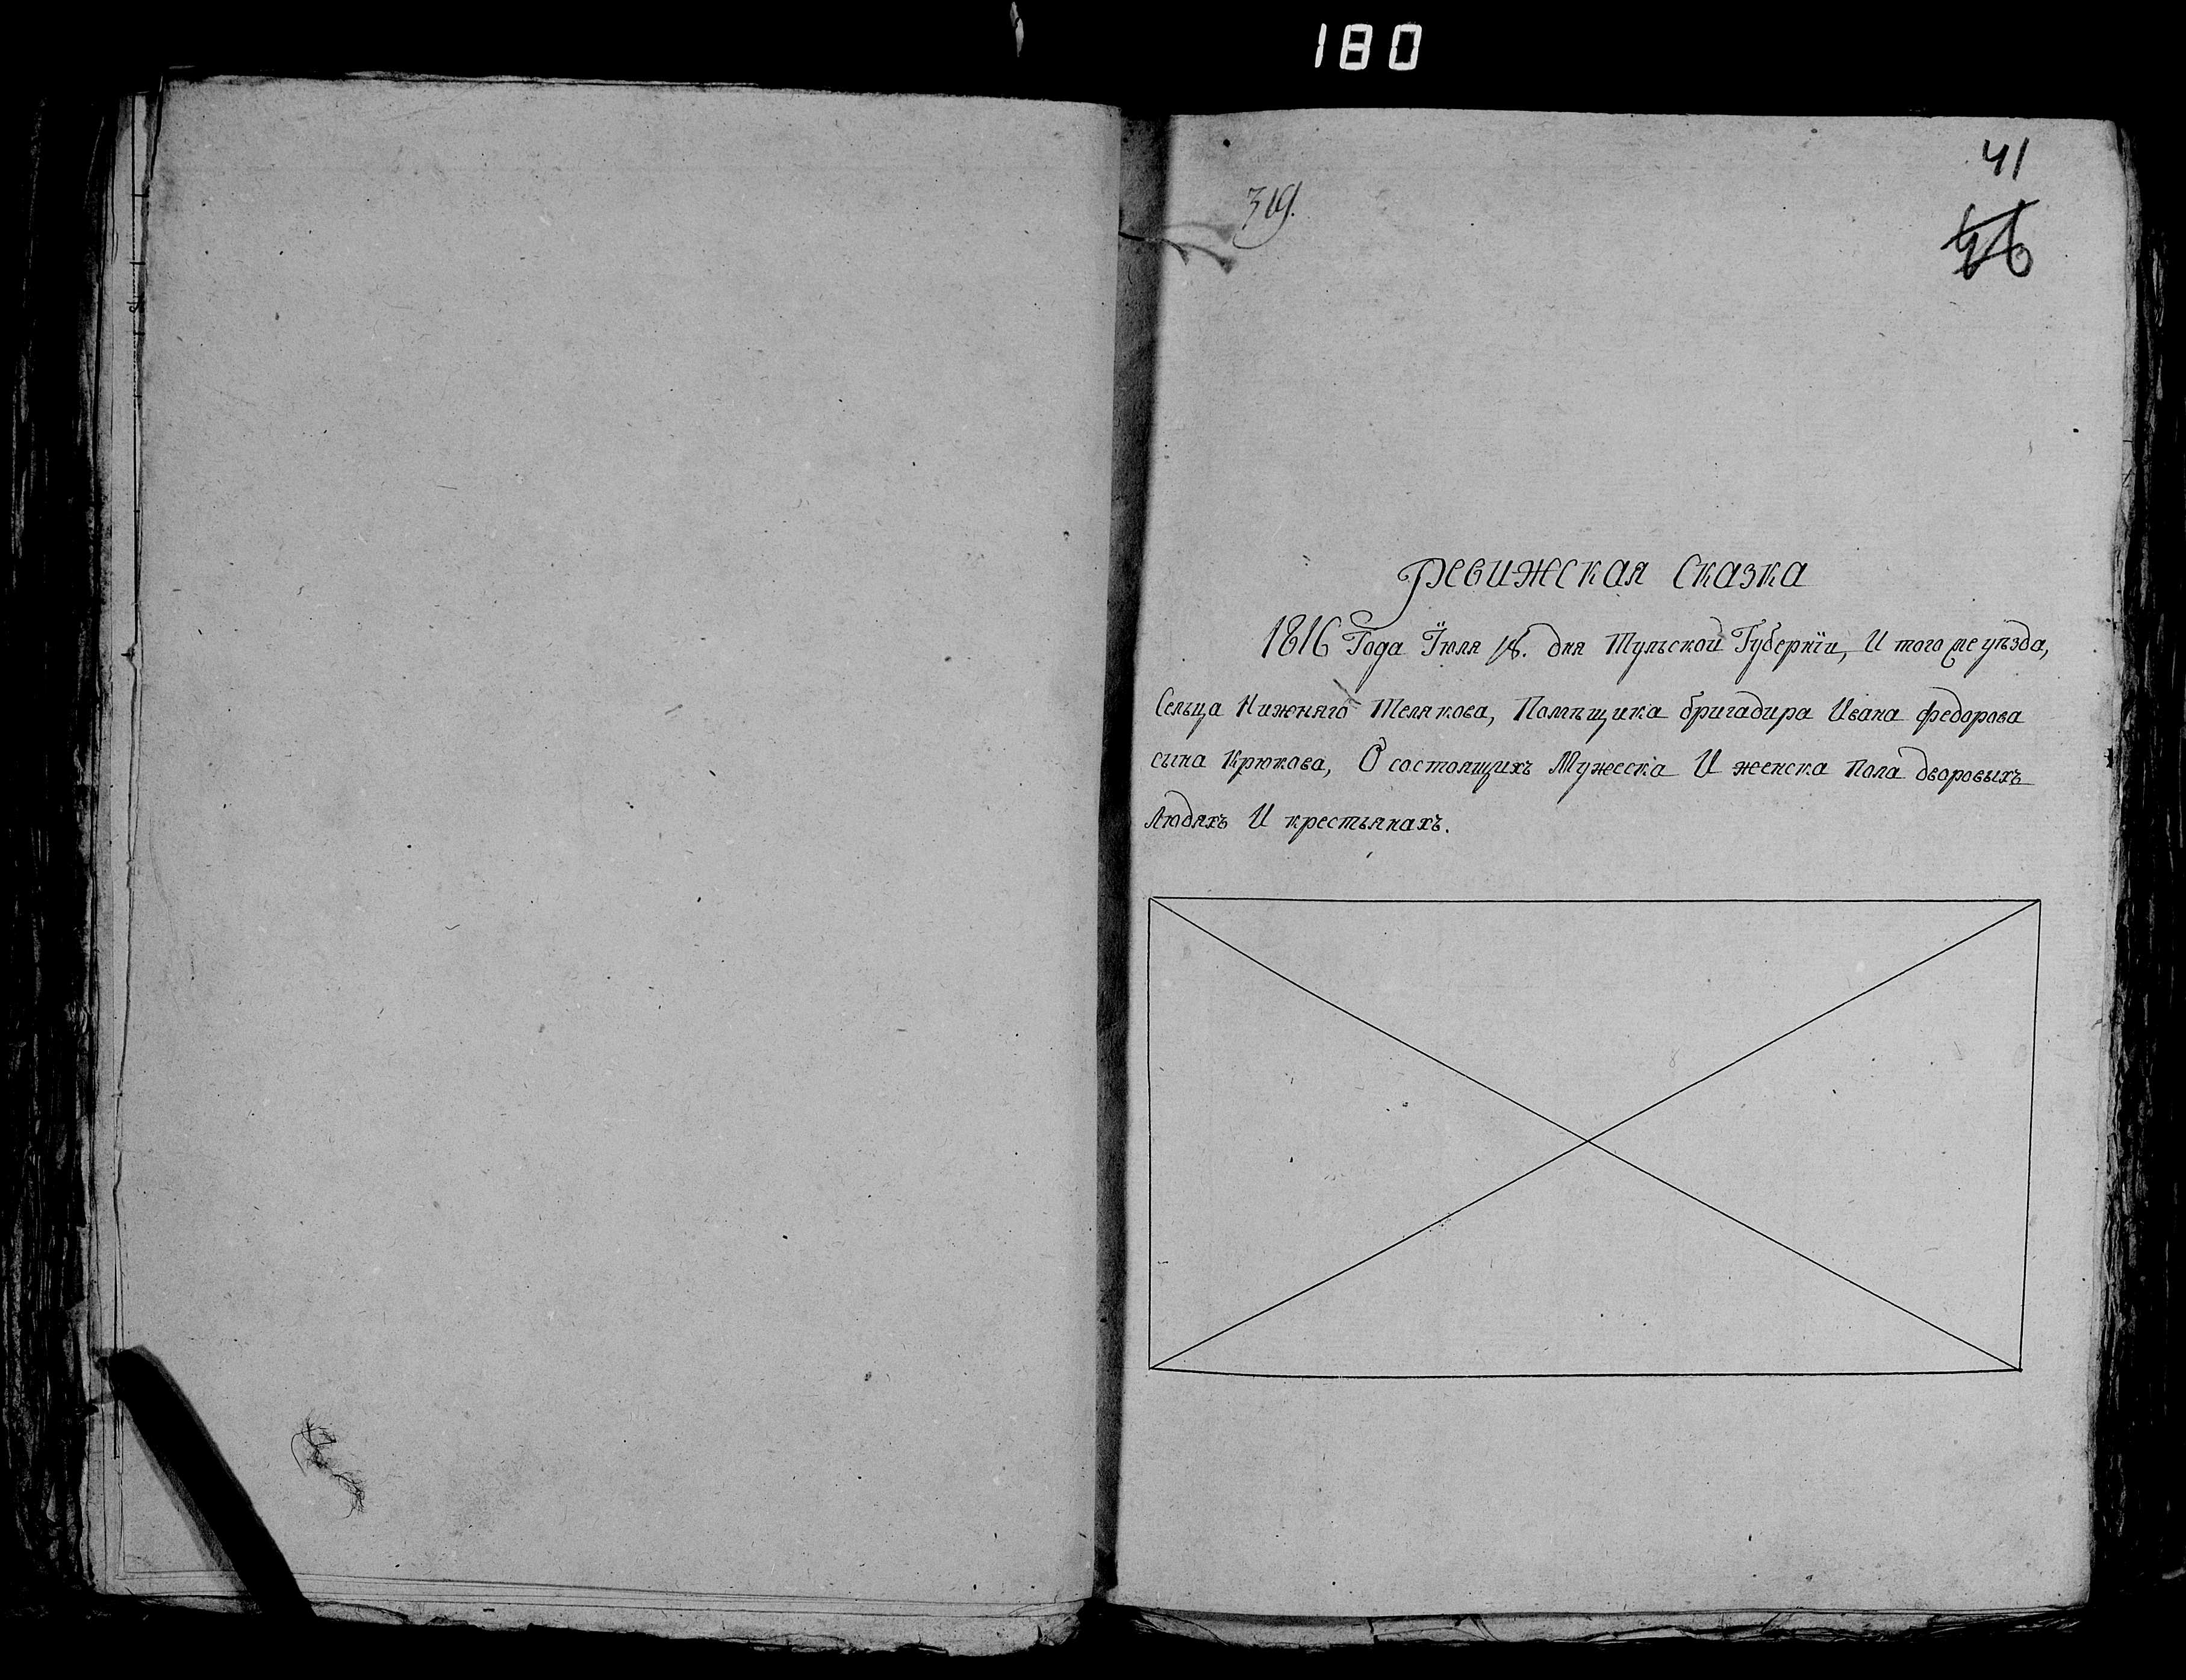 180
41
319.
Ревижская Сказка
1816 Года Їюля дня Тульской Губернїи, И того же уѣзда,
Сельца Нижняго Телякова, Помѣщика бригадира Ивана Федорова
сына Крюкова, О состоящихъ Мужеска И женска пола дворовыхъ
людяхъ И крестьянахъ.